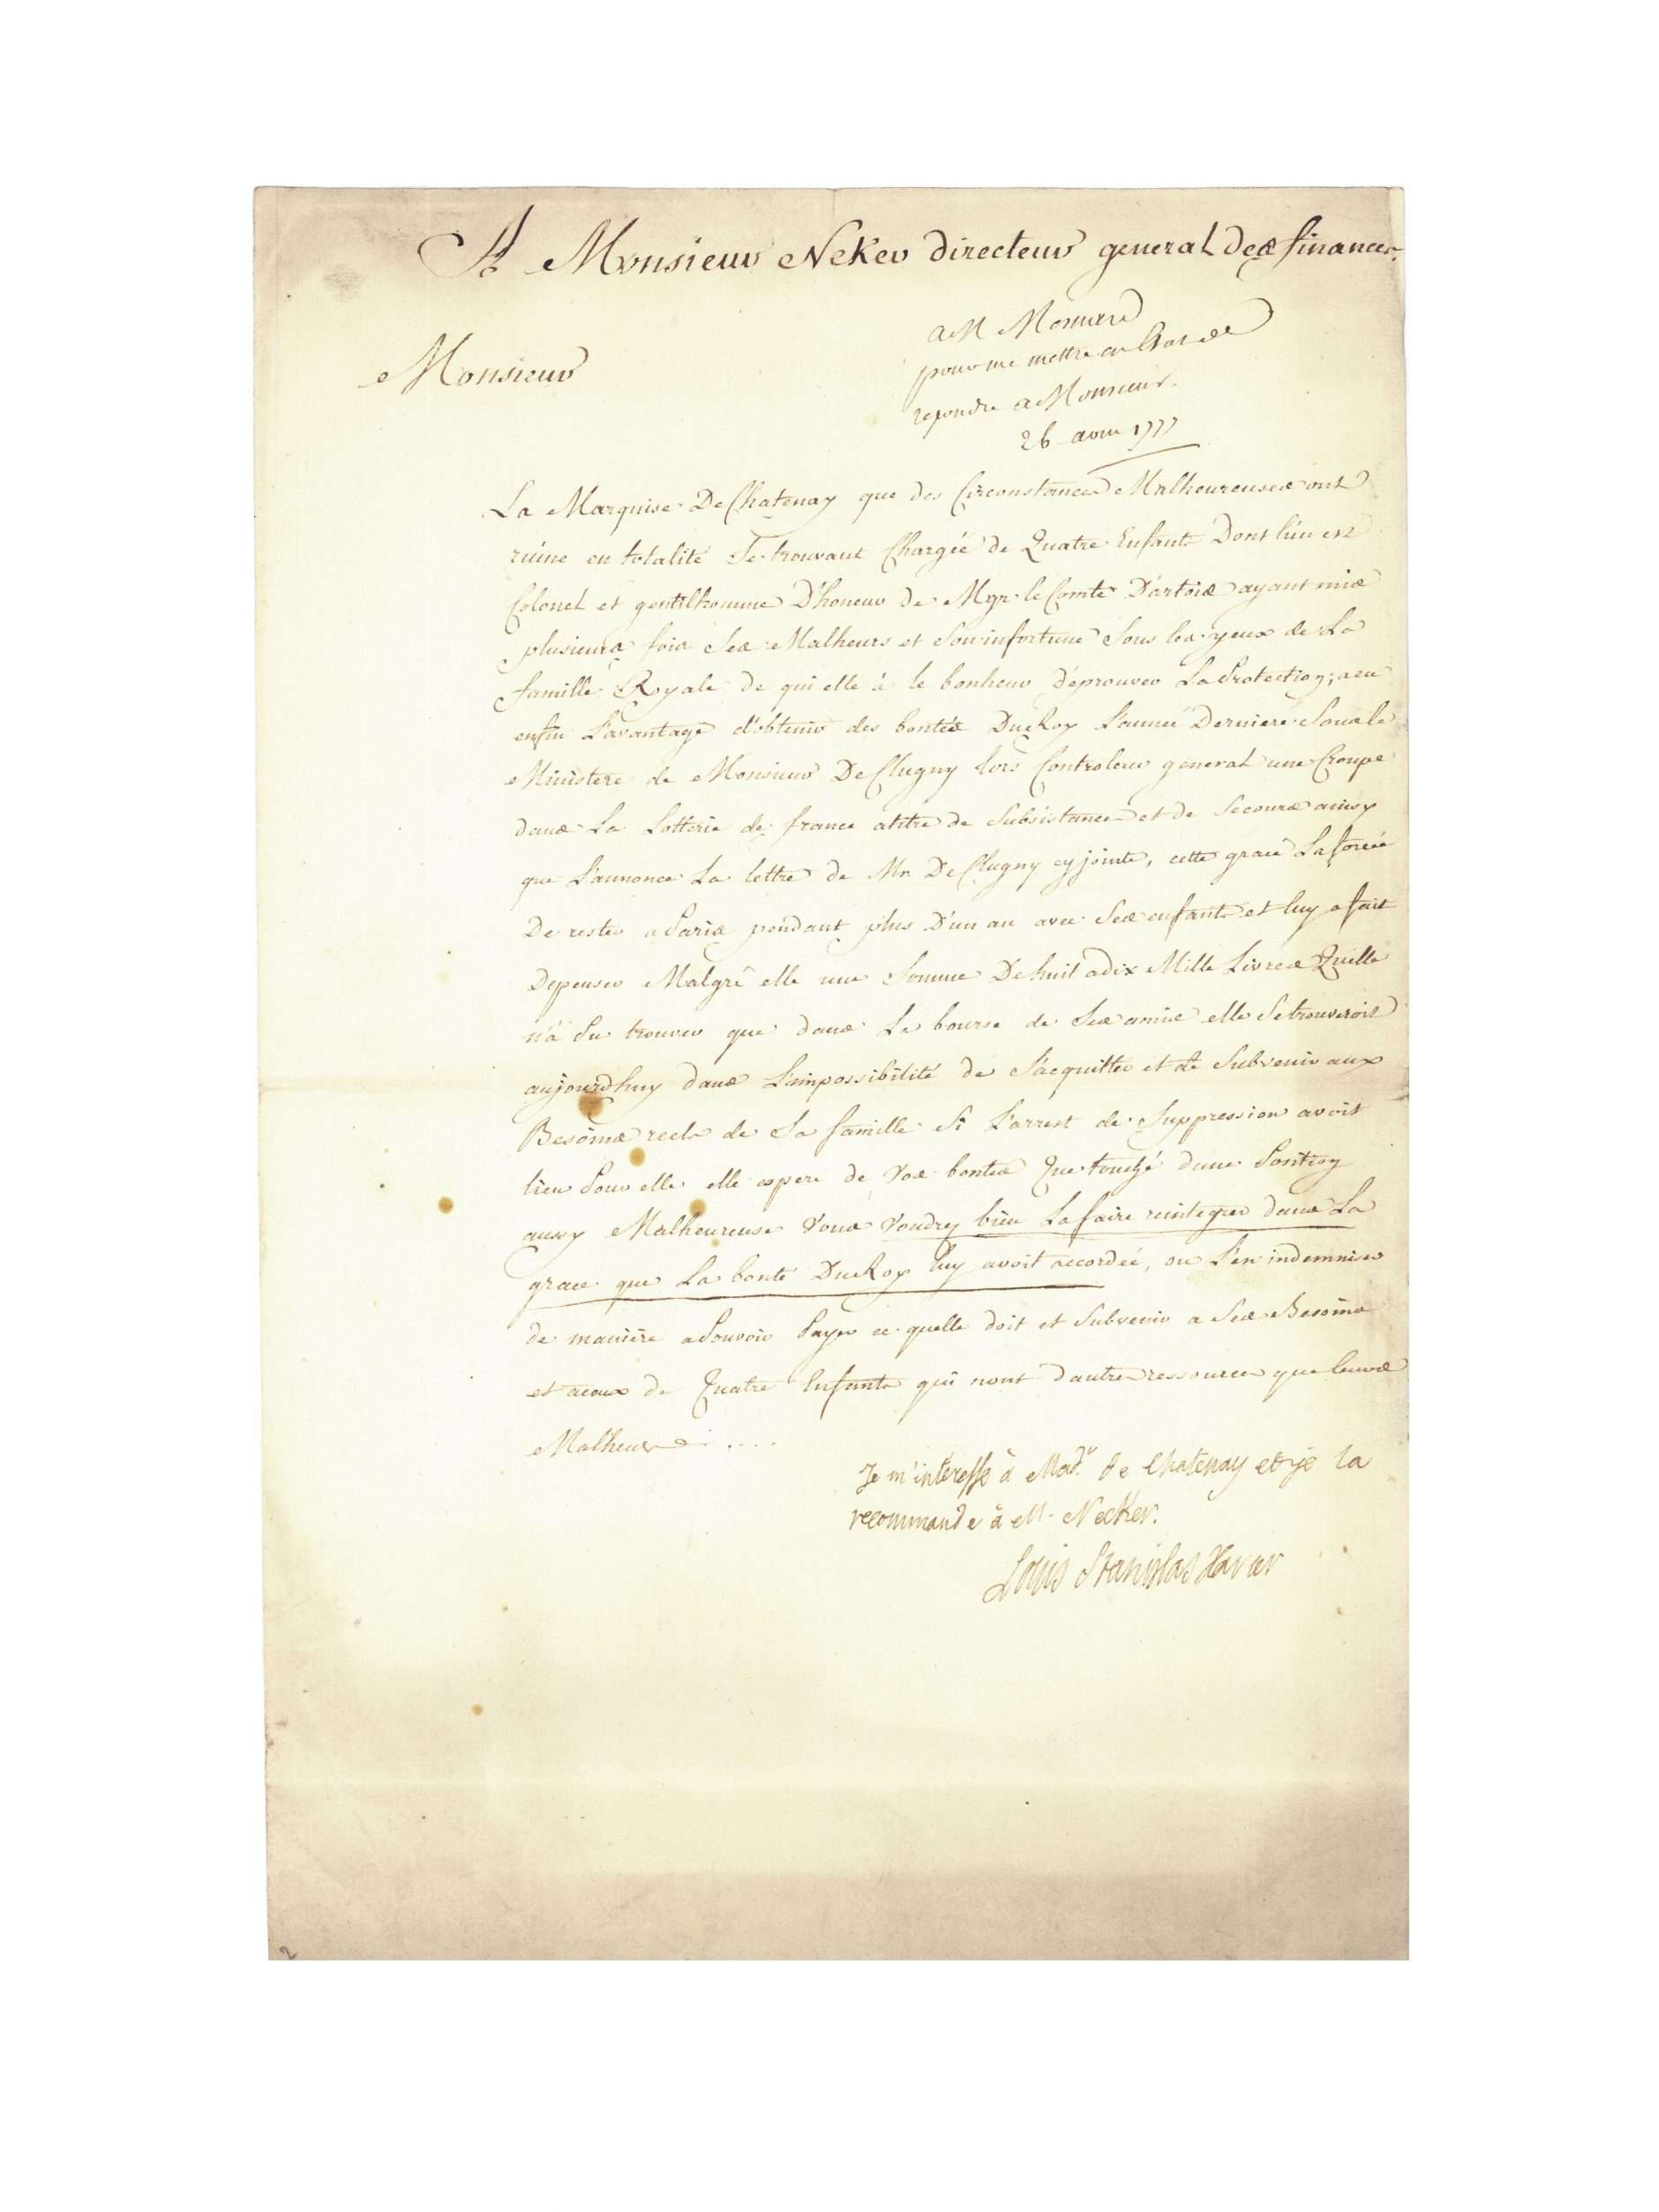 A Monsieur Neker directeur general des finances.
a M Mesnard
pour me mettre en etat de
repondre a Monsieur.
26 avril 1777
Monsieur
La Marquise De Chatenay que des Circonstances Malheureuses ont
ruine en totalité Se trouvant Chargée de Quatre Enfants Dont l'un est
Colonel et gentilhomme D'honeur de Mgr. le Comte D'artois ayant mis
plusieurs fois Ses Malheurs et Son infortune Sous les yeux de La
famille Royale de qui elle à le bonheur d'éprouver La Protection; a eu
enfin L'avantage d'obtenir des bontés Du Roy L'année Derniere Sous le
Ministere de Monsieur De Clugny lors Controleur general une Croupe
dans La Lotterie de france a titre de Subsistance et de Secours ainsy
que L'annonce La lettre de Mr. De Clugny cy jointe, cette grace La forcée
De rester a Paris pendant plus D'un an avec Ses enfants et luy a fait
Depenser Malgré elle une Somme De huit a dix Mille Livres Quelle
n'à Pu trouver que dans La bourse de Ses amis elle Se trouveroit
aujourd'huy dans L'impossibilité de S'acquitter et de Subvenir aux
Besoins reels de Sa famille Si L'arrest de Suppression avoit
lieu Pour elle elle espere de Vos bontés Que touché dune Position
aussy Malheureuse Vous Voudrez bien La faire reintegrer dans La
grace que La bonté Du Roy luy avoit accordée, ou L'en indemniser
de manière a Pouvoir Payer ce quelle doit et Subvenir a Ses Besoins
et aceux de Quatre Enfants qui nont dautres ressources que leurs
Malheurs ....
Je m'interesse à Mad.e de Chatenay et je la
recommande à M. Necker.
Louis Stanislas Xavier
2